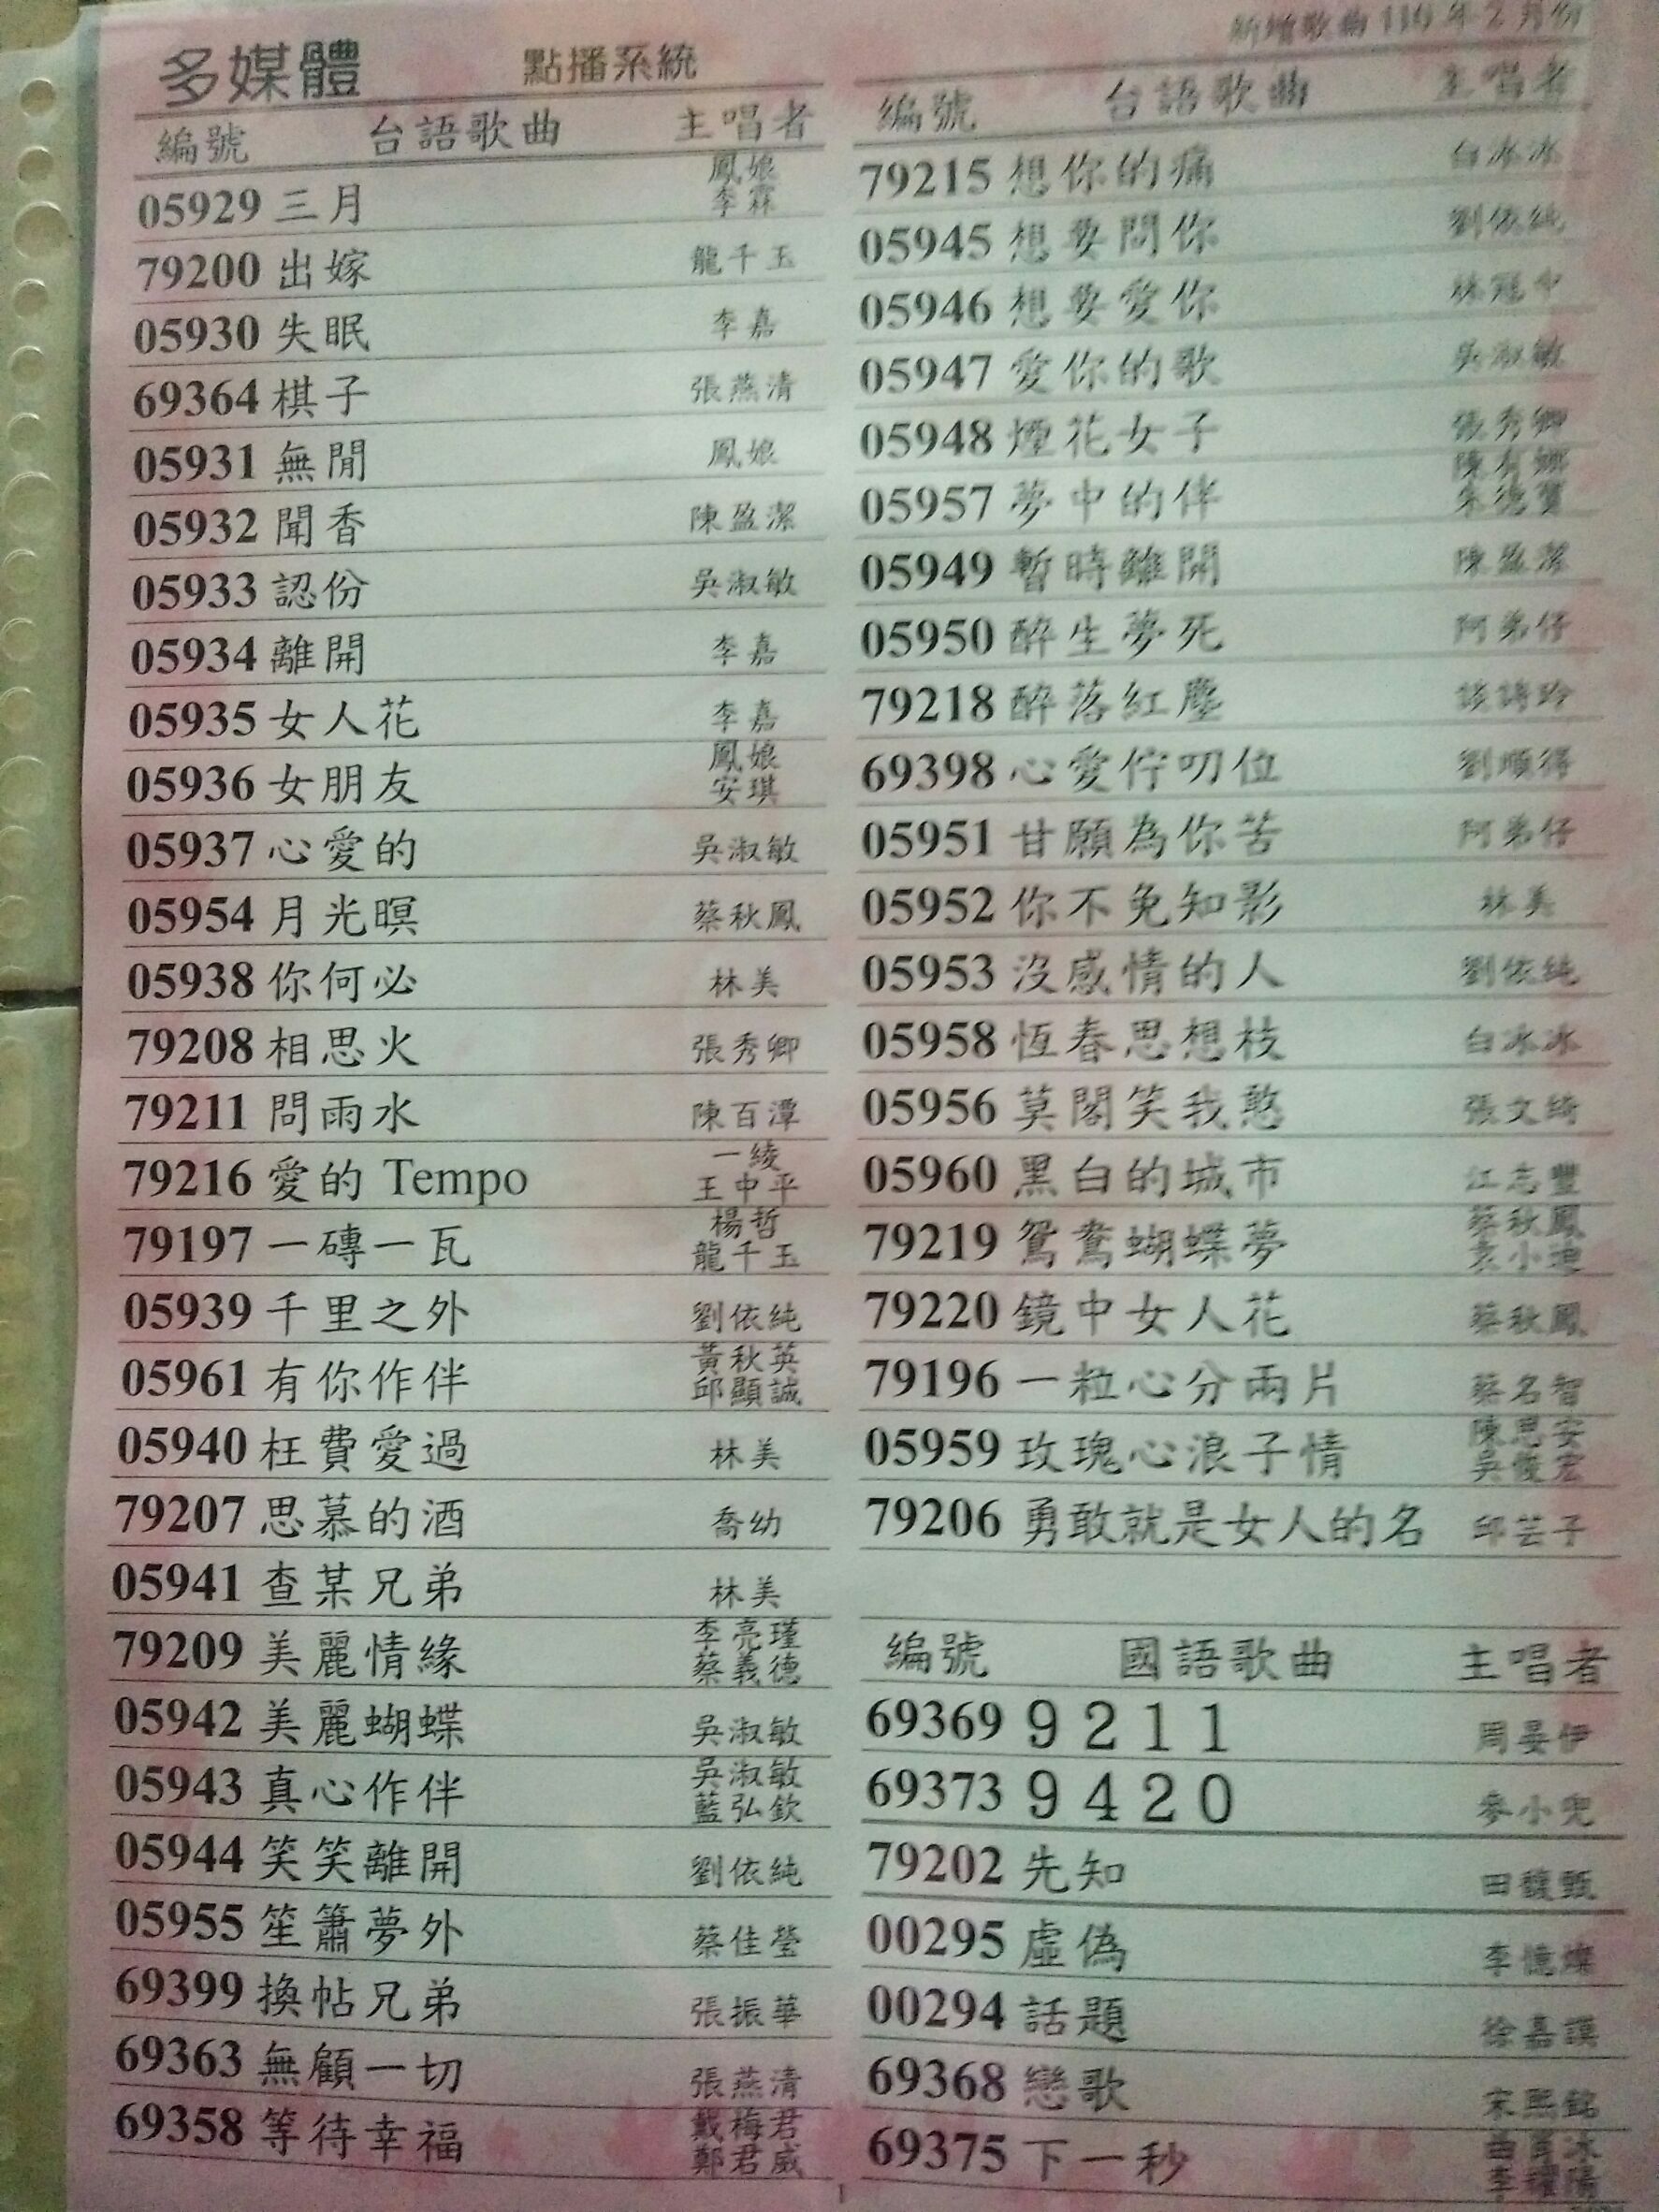 多媒體 點播系統
編號 台語歌曲 主唱者
05929 三月 鳳娘 李霖
79200 出嫁 龍千玉
05930 失眠 李嘉
69364 棋子 張燕清
05931 無閒 鳳娘
05932 聞香 陳盈潔
05933 認份 吳淑敏
05934 離開 李嘉
05935 女人花 李嘉
05936 女朋友 鳳娘 安琪
05937 心愛的 吳淑敏
05954 月光暝 蔡秋鳳
05938 你何必 林美
79208 相思火 張秀卿
79211 問雨水 陳百潭
79216 愛的 Tempo 一綾 王中平
79197 一磚一瓦 楊哲 龍千玉
05939 千里之外 劉依純
05961 有你作伴 黃秋英 邱顯誠
05940 枉費愛過 林美
79207 思慕的酒 喬幼
05941 查某兄弟 林美
79209 美麗情緣 李亮瑾 蔡義德
05942 美麗蝴蝶 吳淑敏
05943 真心作伴 吳淑敏 藍弘欽
05944 笑笑離開 劉依純
05955 笙簫夢外 蔡佳瑩
69399 換帖兄弟 張振華
69363 無顧一切 張燕清
69358 等待幸福 戴梅君 鄭君威
新增歌曲 110 年 2 月份
編號 台語歌曲 主唱者
79215 想你的痛 白冰冰
05945 想要問你 劉依純
05946 想要愛你 林冠中
05947 愛你的歌 吳淑敏
05948 煙花女子 張秀卿
05957 夢中的伴 陳有娜
05949 暫時離開 陳盈潔
05950 醉生夢死 阿弟仔
79218 醉落紅塵 談詩玲
69398 心愛佇叨位 劉順得
05951 甘願為你苦 阿弟仔
05952 你不免知影 林美
05953 沒感情的人 劉依純
05958 恆春思想枝 白冰冰
05956 莫閣笑我憨 張文綺
05960 黑白的城市 江志豐
79219 鴛鴦蝴蝶夢 蔡秋鳳 袁小迪
79220 鏡中女人花 蔡秋鳳
79196 一粒心分兩片 蔡名智
05959 玫瑰心浪子情 陳思安 吳俊宏
79206 勇敢就是女人的名 邱芸子
編號 國語歌曲 主唱者
69369 9211 周晏伊
69373 9420 麥小兜
79202 先知 田馥甄
00295 虛偽 李憶燦
00294 話題 徐嘉謨
69368 戀歌 宋熙銘
69375 下一秒